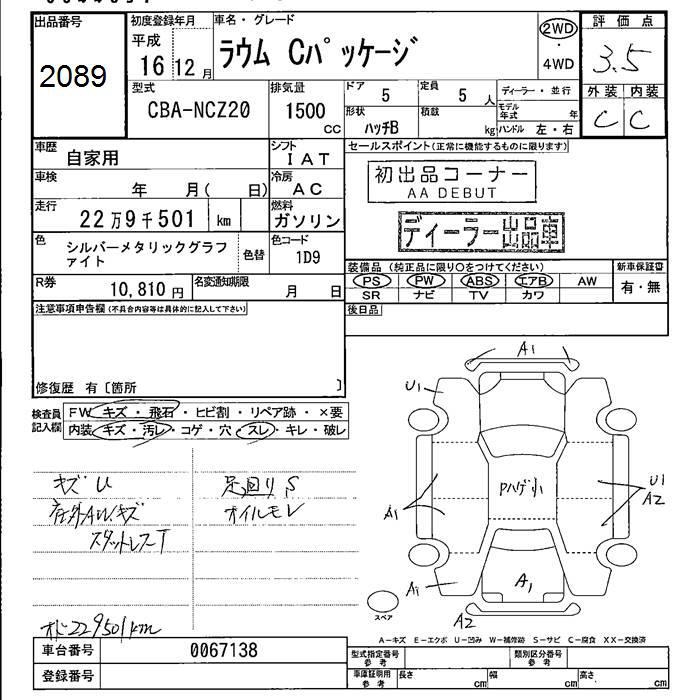 出品番号
2089
初度登録年月
平成
16 12 月
車名・グレード
ラウム Cパッケージ
2WD
・
4WD
評価点
3.5
外装 内装
C C
型式
CBA-NCZ20
排気量
1500
cc
ドア
5
定員
5 人
形状
ハッチB
積載
kg
ディーラー・並行
モデル
年式 年
ハンドル 左・右
車歴
自家用
シフト
IAT
車検
年 月( 日)
冷房
AC
走行
22万9千501 km
燃料
ガソリン
色
シルバーメタリックグラフ
ァイト
色替
色コード
1D9
R券
10,810 円
名変通知期限
月 日
セールスポイント(正常に機能するものに限ります)
初出品コーナー
AA DEBUT
ディーラー出品車
装備品 (純正品に限り○をつけてください)
PS PW ABS エアB AW
SR ナビ TV カワ
新車保証書
有・無
後日品
注意事項申告欄(不具合内容等は具体的に記入して下さい)
修復歴 有〔箇所 〕
検査員
記入欄
FW キズ・飛石・ヒビ割・リペア跡・×要
内装 キズ・汚レ・コゲ・穴・スレ・キレ・破レ
キズ U
足廻り S
オイルモレ
スタットレスT
229501km
A1
U1
A1
Pハゲ小
U1
A2
A1
A1
A2
スペア
A-キズ E-エクボ U-凹み W-補修跡 S-サビ C-腐食 XX-交換済
車台番号
0067138
登録番号
型式指定番号
参考
類別区分番号
参考
車庫証明用
参考
長さ cm
幅 cm
高さ cm